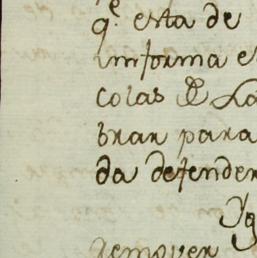 q.e esta de
imforma e
colas de La
brar para
da defender
Yg
remover